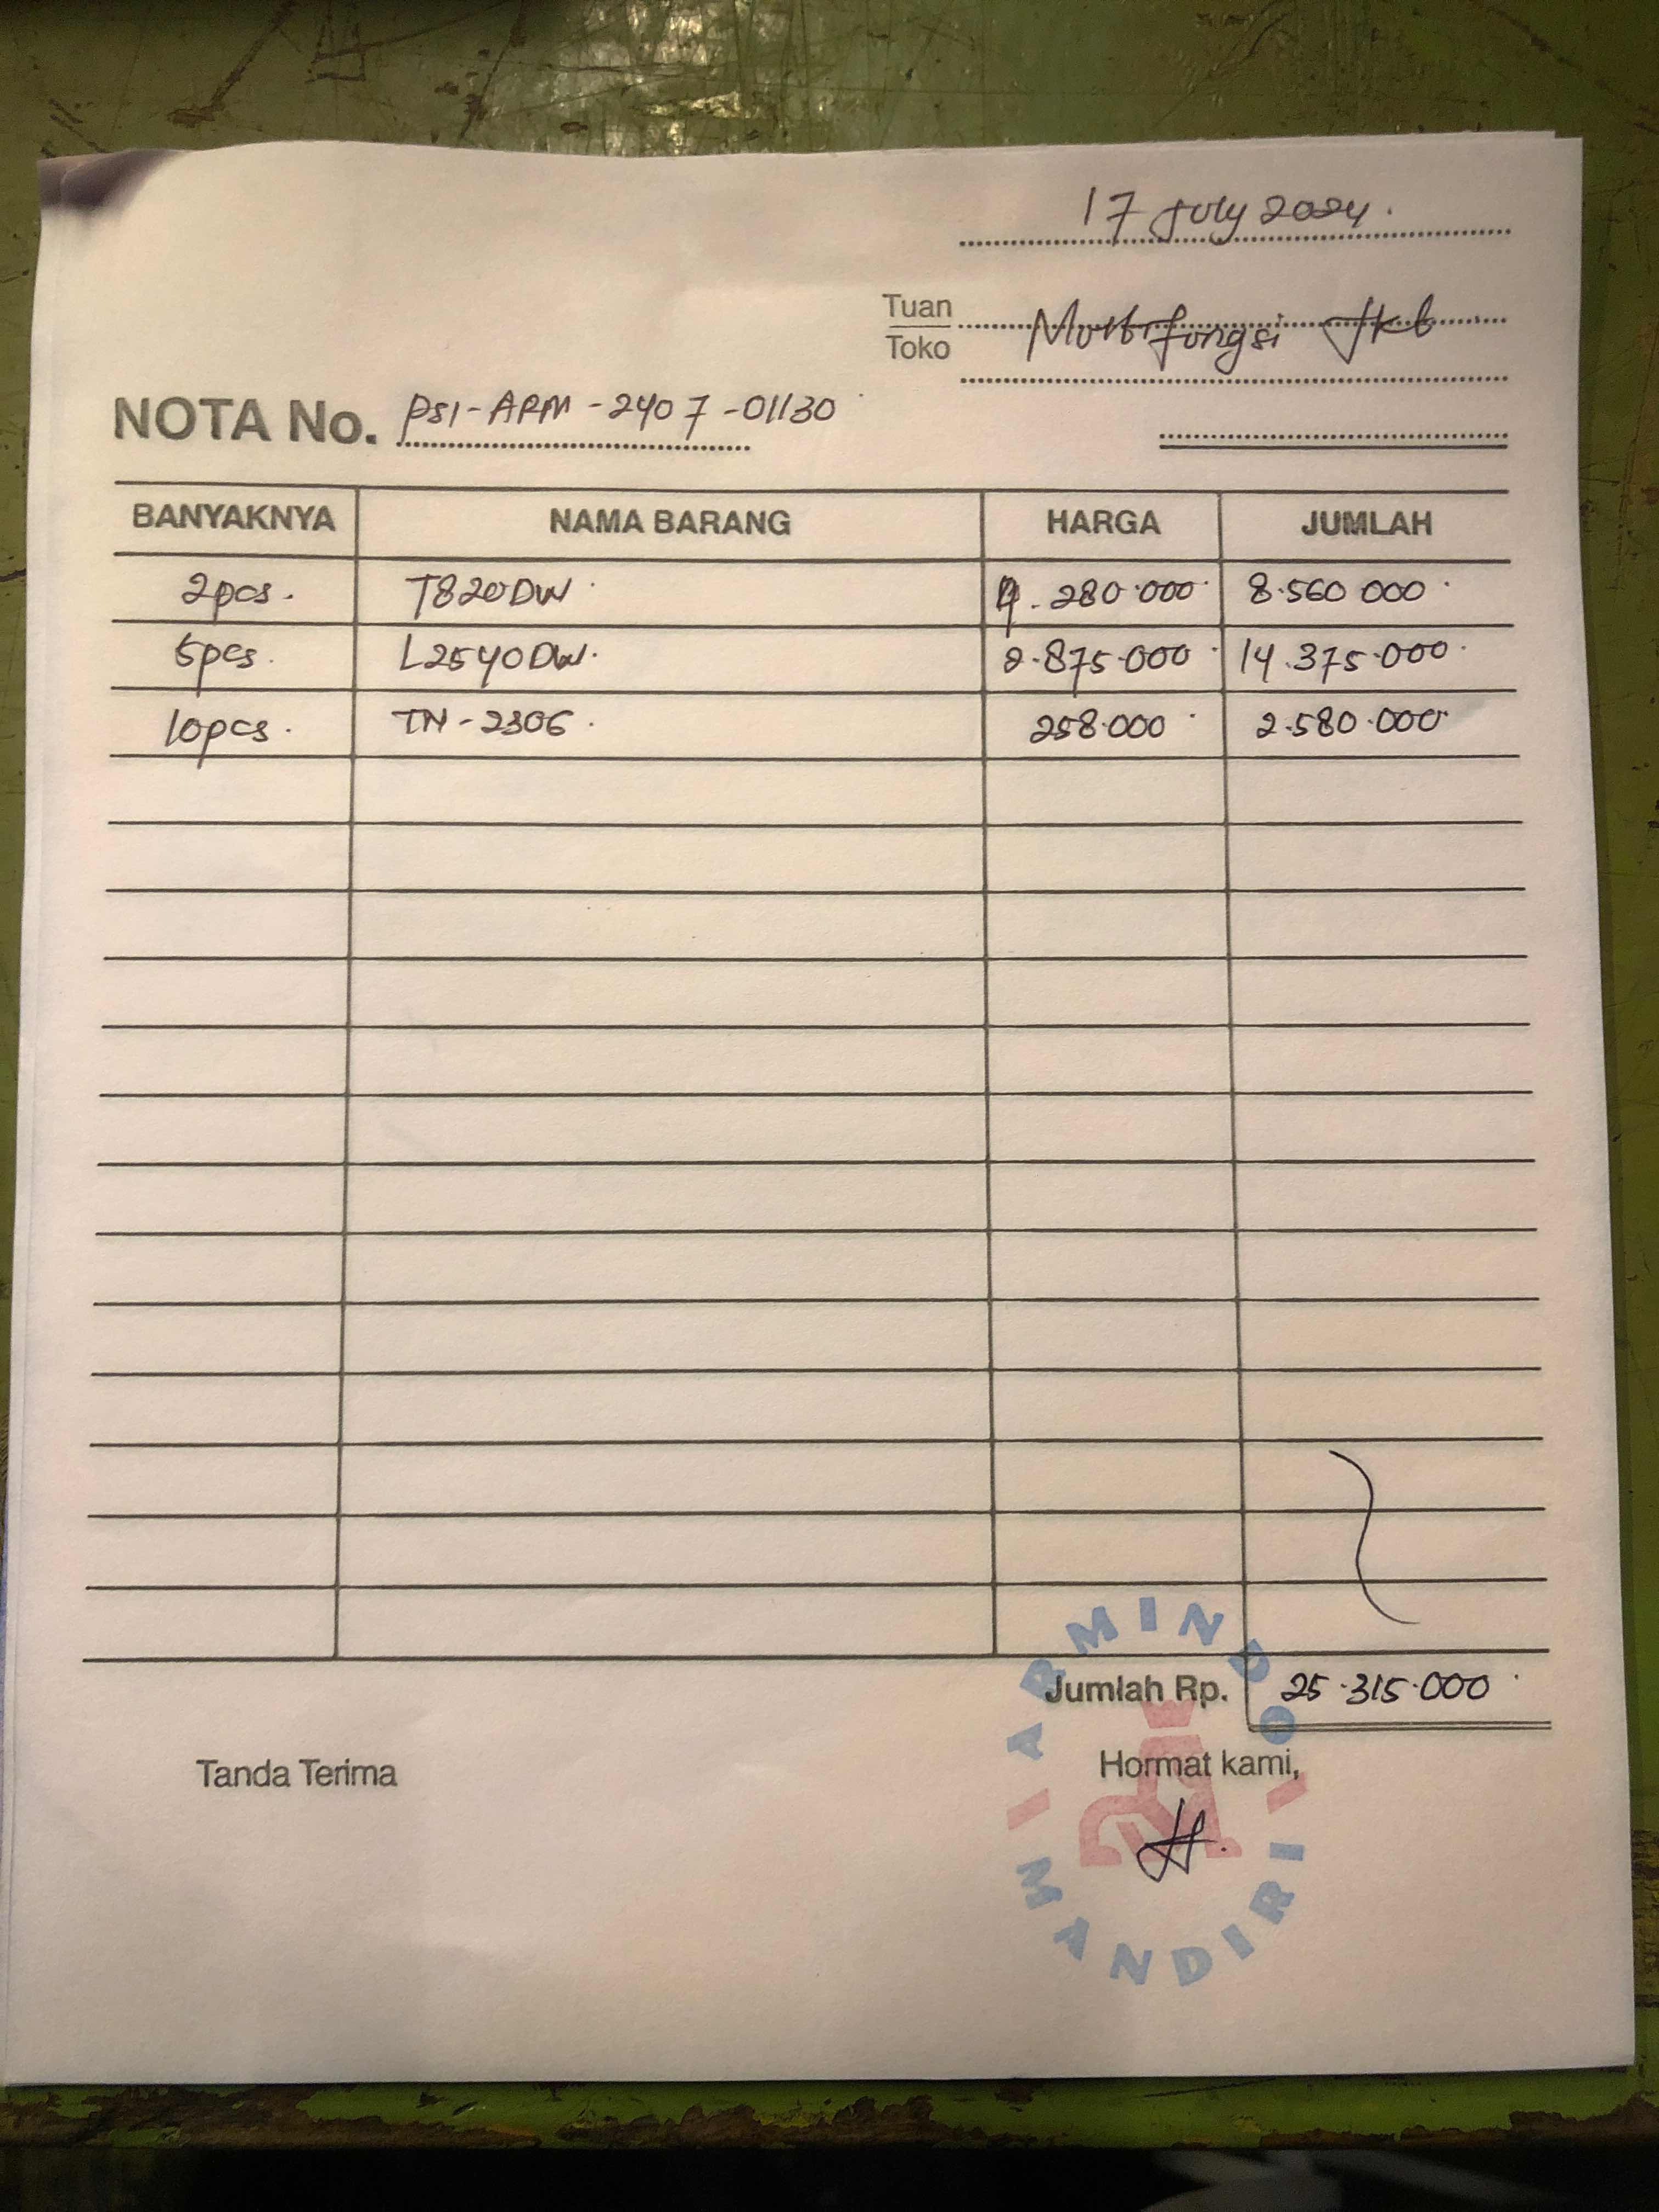 17 July 2024.
Tuan
Toko
Multifungsi Jkt
NOTA No. PSI-ARM-2407-01130
BANYAKNYA NAMA BARANG HARGA JUMLAH
2pcs. T820DW. 4.280.000 8.560.000
5pcs. L2540DW. 2.875.000 14.375.000
10pcs. TN-2306. 258.000 2.580.000
Jumlah Rp. 25.315.000
Tanda Terima Hormat kami,
ARMINDO MANDIRI